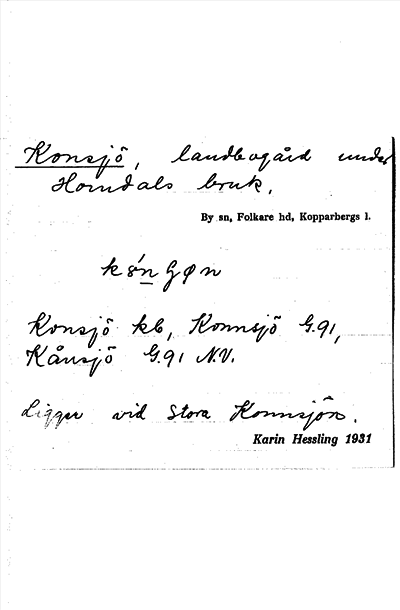 Konsjö, landbogård under
Horndals bruk.
By sn, Folkare hd, Kopparbergs l.
Konsjö kb, Konnsjö G.91,
Kånsjö G.91 N.V.
Ligger vid Stora Konnsjön.
Karin Hessling 1931